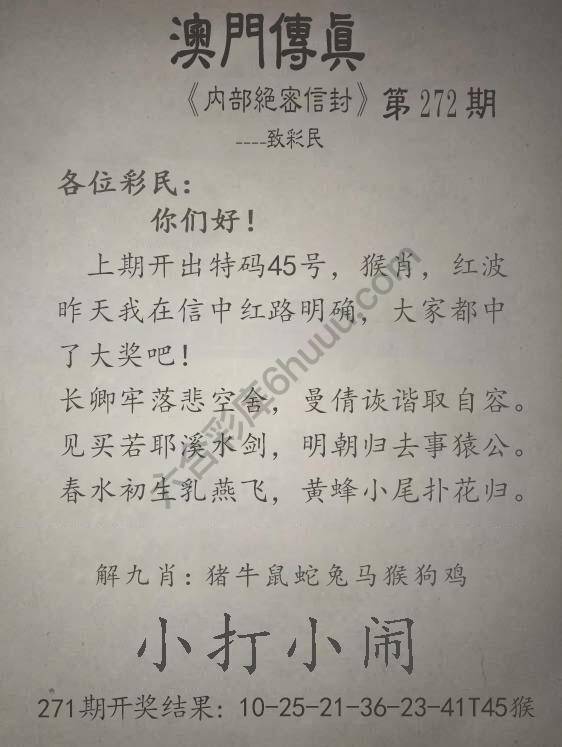 澳門傳眞
《内部絕密信封》第272期
----致彩民
各位彩民：
你们好！
上期开出特码45号，猴肖，红波
昨天我在信中红路明确，大家都中
了大奖吧！
长卿牢落悲空舍，曼倩诙谐取自容。
见买若耶溪水剑，明朝归去事猿公。
春水初生乳燕飞，黄蜂小尾扑花归。
解九肖：猪牛鼠蛇兔马猴狗鸡
小打小闹
271期开奖结果：10-25-21-36-23-41T45猴
六合彩库6huuu.com